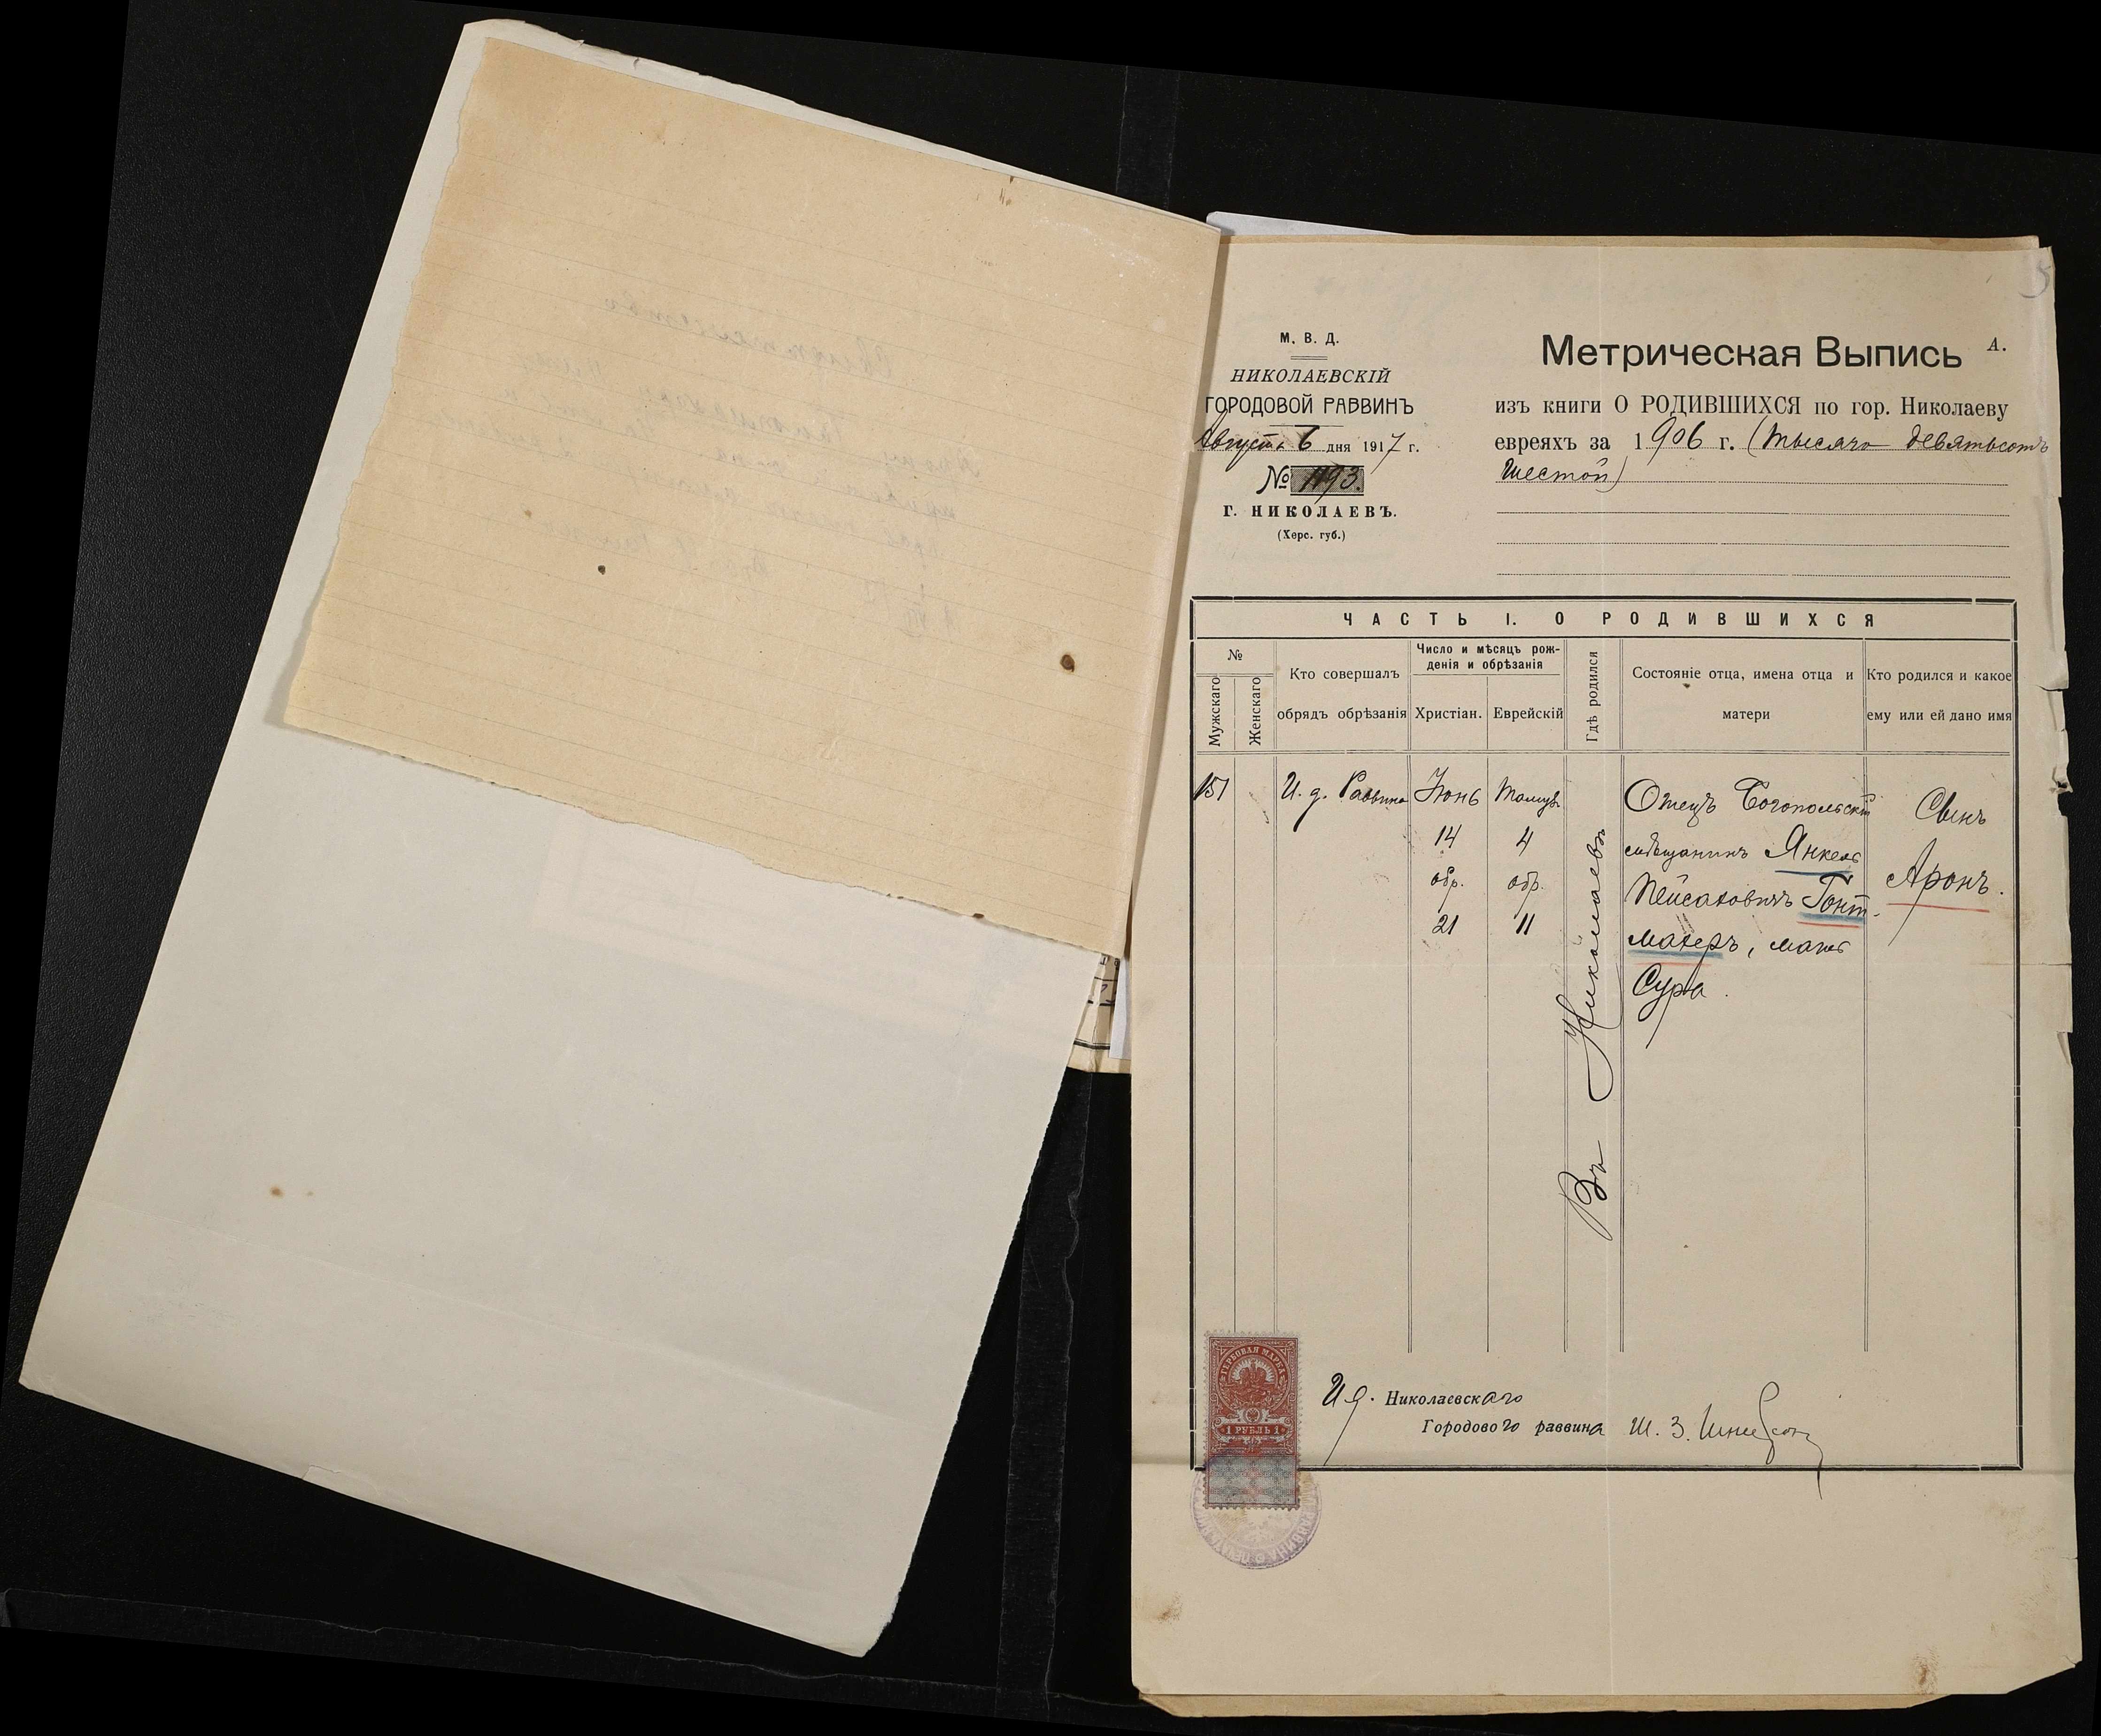 5
М. В. Д.
НИКОЛАЕВСКІЙ
ГОРОДОВОЙ РАВВИНЪ
Августа 6 дня 1917 г.
№ 1193.
Г. НИКОЛАЕВЪ.
(Херс. губ.)
Метрическая Выпись А.
изъ книги О РОДИВШИХСЯ по гор. Николаеву
евреяхъ за 1906 г. (тысяча девятьсотъ
шестой)
ЧАСТЬ I. О РОДИВШИХСЯ
№
Мужскаго
Женскаго
Кто совершалъ
обрядъ обрѣзанія
Число и мѣсяцъ рож-
денія и обрѣзанія
Христіан.
Еврейскій
Гдѣ родился
Состояніе отца, имена отца и
матери
Кто родился и какое
ему или ей дано имя
151
И. д. Раввина
Іюнь
14
обр.
21
Тамузъ
4
обр.
11
Въ Николаевѣ
Отецъ Богопольскій
мѣщанинъ Янкель
Пейсаховичъ Гонт-
махеръ, мать
Сура.
Сынъ
Аронъ.
ГЕРБОВАЯ МАРКА
1 РУБЛЬ 1
И д. Николаевскаго
Городового раввина Ш. З. Шнеерсонъ